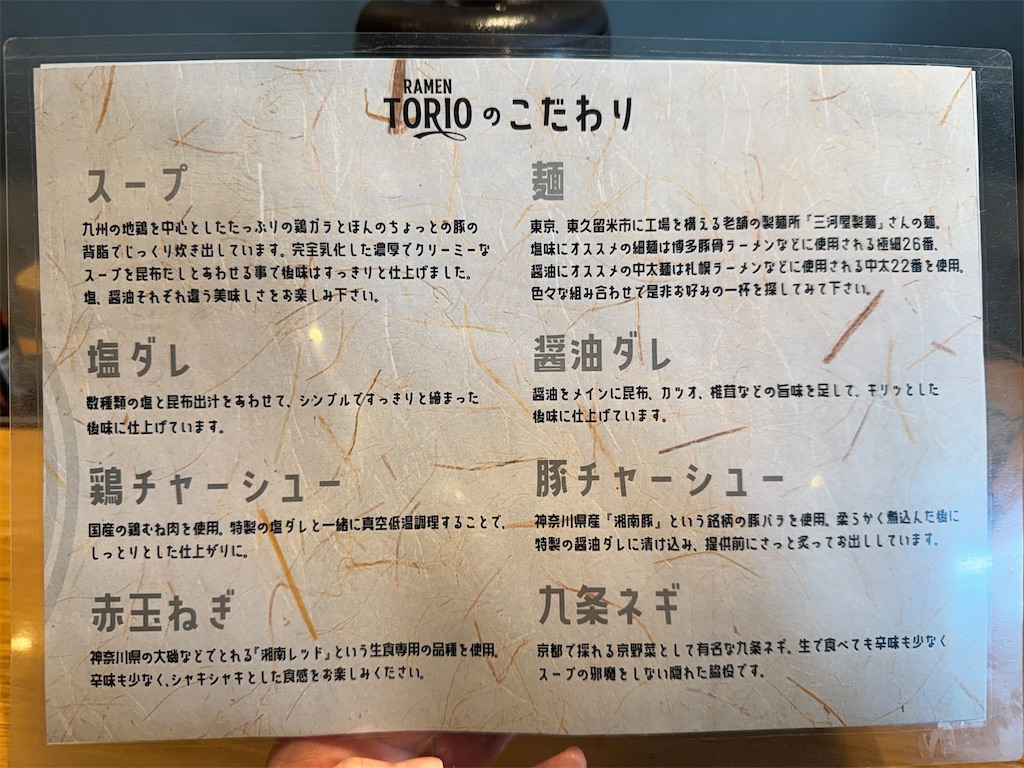 RAMEN
TORIOのこだわり
スープ
九州の地鶏を中心としたたっぷりの鶏ガラとほんのちょっとの豚の
背脂でじっくり炊き出しています。完全乳化した濃厚でクリーミーな
スープを昆布だしとあわせる事で後味はすっきりと仕上げました。
塩、醤油それぞれ違う美味しさをお楽しみ下さい。
麺
東京、東久留米市に工場を構える老舗の製麺所「三河屋製麺」さんの麺。
塩味にオススメの細麺は博多豚骨ラーメンなどに使用される極細26番、
醤油にオススメの中太麺は札幌ラーメンなどに使用される中太22番を使用。
色々な組み合わせで是非お好みの一杯を探してみて下さい。
塩ダレ
数種類の塩と昆布出汁をあわせて、シンプルですっきりと締まった
後味に仕上げています。
醤油ダレ
醤油をメインに昆布、カツオ、椎茸などの旨味を足して、キリッとした
後味に仕上げています。
鶏チャーシュー
国産の鶏むね肉を使用。特製の塩ダレと一緒に真空低温調理することで、
しっとりとした仕上がりに。
豚チャーシュー
神奈川県産「湘南豚」という銘柄の豚バラを使用。柔らかく煮込んだ後に
特製の醤油ダレに漬け込み、提供前にさっと炙ってお出ししています。
赤玉ねぎ
神奈川県の大磯などでとれる「湘南レッド」という生食専用の品種を使用。
辛味も少なく、シャキシャキとした食感をお楽しみください。
九条ネギ
京都で採れる京野菜として有名な九条ネギ。生で食べても辛味も少なく
スープの邪魔をしない隠れた脇役です。